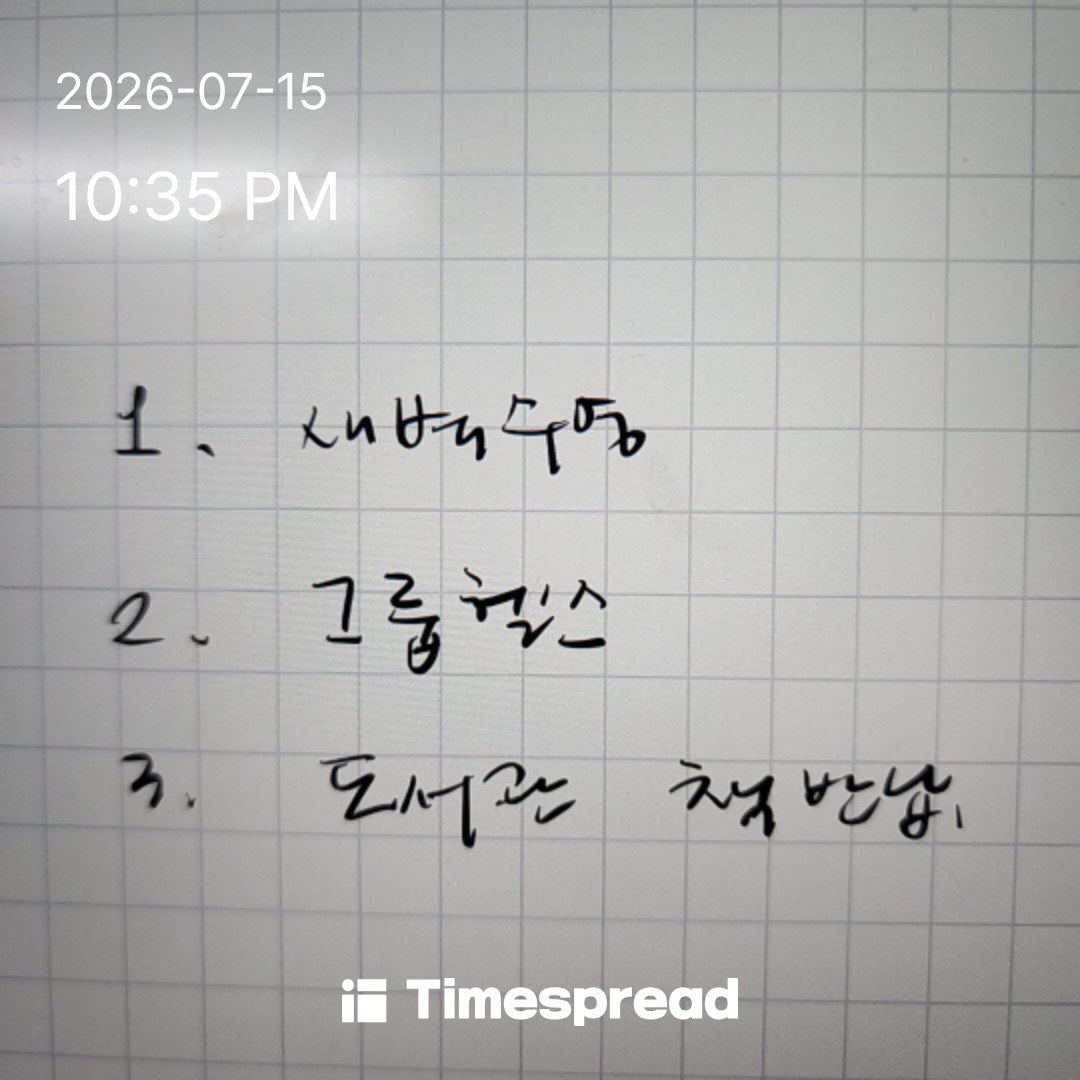 2026-07-15
10:35 PM
1. 새벽수영
2. 그룹헬스
3. 도서관 책반납.
Timespread